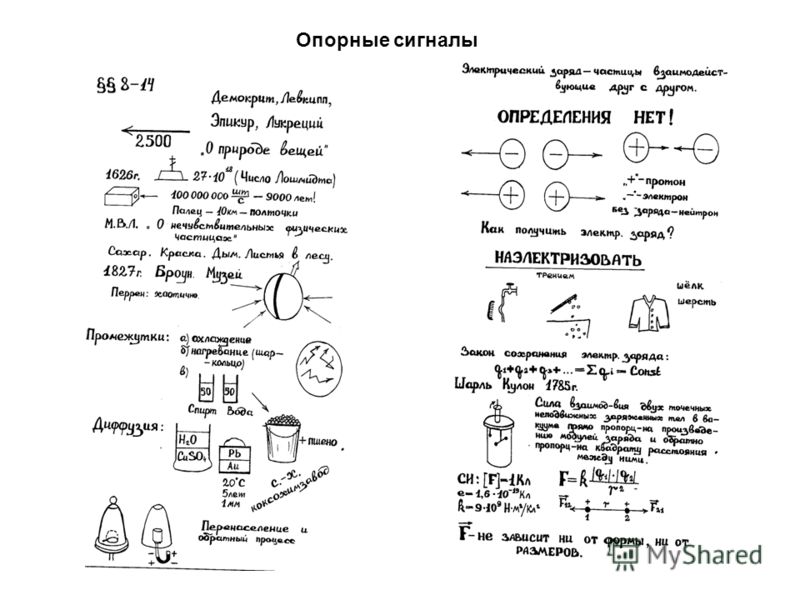 Опорные сигналы
§§ 8-14
Демокрит, Левкипп,
Эпикур, Лукреций
2500
„О природе вещей"
1626г.
27·10¹⁸ (Число Лошмидта)
100 000 000 шт/с — 9000 лет!
Палец — 10км — полточки
М.В.Л. „О нечувствительных физических
частицах"
Сахар. Краска. Дым. Листья в лесу.
1827г. Броун. Музей
Перрен: хаотично.
Промежутки:
а) охлаждение
б) нагревание (шар—
-кольцо)
в)
50
50
Спирт
Вода
Диффузия:
H₂O
CuSO₄
Pb
Au
20°C
5лет
1мм
+пшено.
с.-х.
коксохимзавод
Перенаселение и
обратный процесс
Электрический заряд — частицы взаимодейст-
вующие друг с другом.
ОПРЕДЕЛЕНИЯ НЕТ!
„+"-протон
„−"-электрон
без заряда-нейтрон
Как получить электр. заряд?
НАЭЛЕКТРИЗОВАТЬ
трением
шёлк
шерсть
Закон сохранения электр. заряда:
q₁+q₂+q₃+...=Σqᵢ — Const
Шарль Кулон 1785г.
Сила взаимод-вия двух точечных
неподвижных заряженных тел в ва-
кууме прямо пропорц-на произведе-
нию модулей заряда и обратно
пропорц-на квадрату расстояния
между ними.
СИ: [F]=1Кл
F=k |q₁|·|q₂| / r²
e=1,6·10⁻¹⁹Кл
k=9·10⁹ Н·м²/кл²
F₁₂ + r + F₂₁
1 2
F-не зависит ни от формы, ни от
размеров.
MyShared